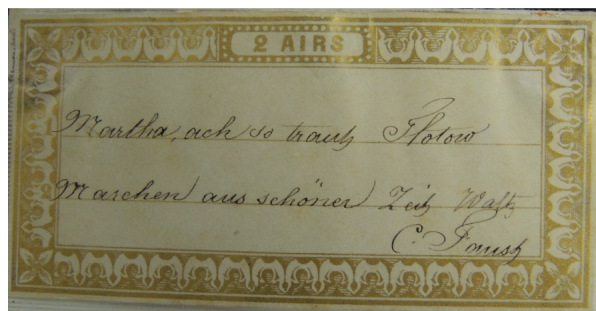 2 AIRS
Martha, ach so traut Flotow
Marchen aus schöner Zeit Waltz
C. Faust